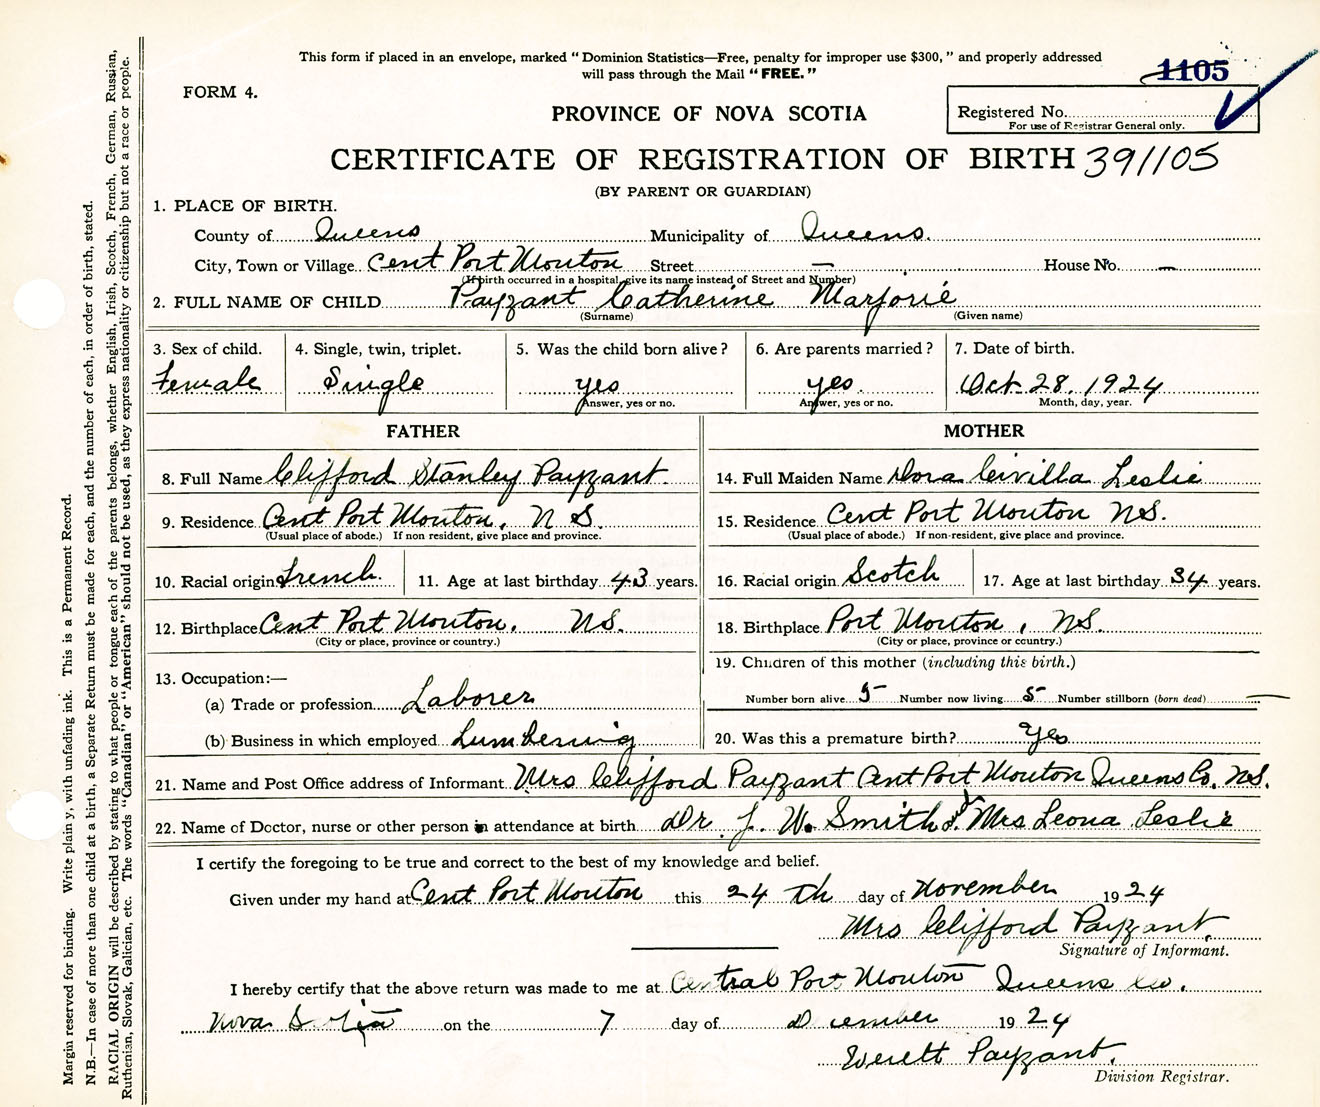 This form if placed in an envelope, marked "Dominion Statistics—Free, penalty for improper use $300," and properly addressed
will pass through the Mail "FREE."
1105
FORM 4.
PROVINCE OF NOVA SCOTIA
Registered No.
For use of Registrar General only.
CERTIFICATE OF REGISTRATION OF BIRTH 391105
(BY PARENT OR GUARDIAN)
1. PLACE OF BIRTH.
County of Queens Municipality of Queens.
City, Town or Village Cent Port Mouton Street — House No. —
(If birth occurred in a hospital, give its name instead of Street and Number)
2. FULL NAME OF CHILD Payzant Catherine Marjorie
(Surname) (Given name)
3. Sex of child. 4. Single, twin, triplet. 5. Was the child born alive? 6. Are parents married? 7. Date of birth.
Female Single yes yes. Oct. 28, 1924
Answer, yes or no. Answer, yes or no. Month, day, year.
FATHER MOTHER
8. Full Name Clifford Stanley Payzant. 14. Full Maiden Name Dora Civilla Leslie
9. Residence Cent Port Mouton, N S. 15. Residence Cent Port Mouton N.S.
(Usual place of abode.) If non resident, give place and province. (Usual place of abode.) If non-resident, give place and province.
10. Racial origin French 11. Age at last birthday 43 years. 16. Racial origin Scotch 17. Age at last birthday 34 years.
12. Birthplace Cent Port Mouton, N.S. 18. Birthplace Port Mouton, N.S.
(City or place, province or country.) (City or place, province or country.)
13. Occupation:— 19. Children of this mother (including this birth.)
(a) Trade or profession Laborer Number born alive 5 Number now living 5 Number stillborn (born dead) —
(b) Business in which employed Lumbering 20. Was this a premature birth? Yes
21. Name and Post Office address of Informant Mrs Clifford Payzant Cent Port Mouton Queens Co. N.S.
22. Name of Doctor, nurse or other person in attendance at birth Dr. J. W. Smith & Mrs Leona Leslie
I certify the foregoing to be true and correct to the best of my knowledge and belief.
Given under my hand at Cent Port Mouton this 24 th day of November 1924
Mrs Clifford Payzant.
Signature of Informant.
I hereby certify that the above return was made to me at Central Port Mouton Queens Co.
Nova Scotia on the 7 day of December 1924
Everett Payzant.
Division Registrar.
Margin reserved for binding. Write plainly, with unfading ink. This is a Permanent Record.
N.B.—In case of more than one child at a birth, a Separate Return must be made for each, and the number of each, in order of birth, stated.
RACIAL ORIGIN will be described by stating to what people or tongue each of the parents belongs, whether English, Irish, Scotch, French, German, Russian,
Ruthenian, Slovak, Galician, etc. The words "Canadian" or "American" should not be used, as they express nationality or citizenship but not a race or people.